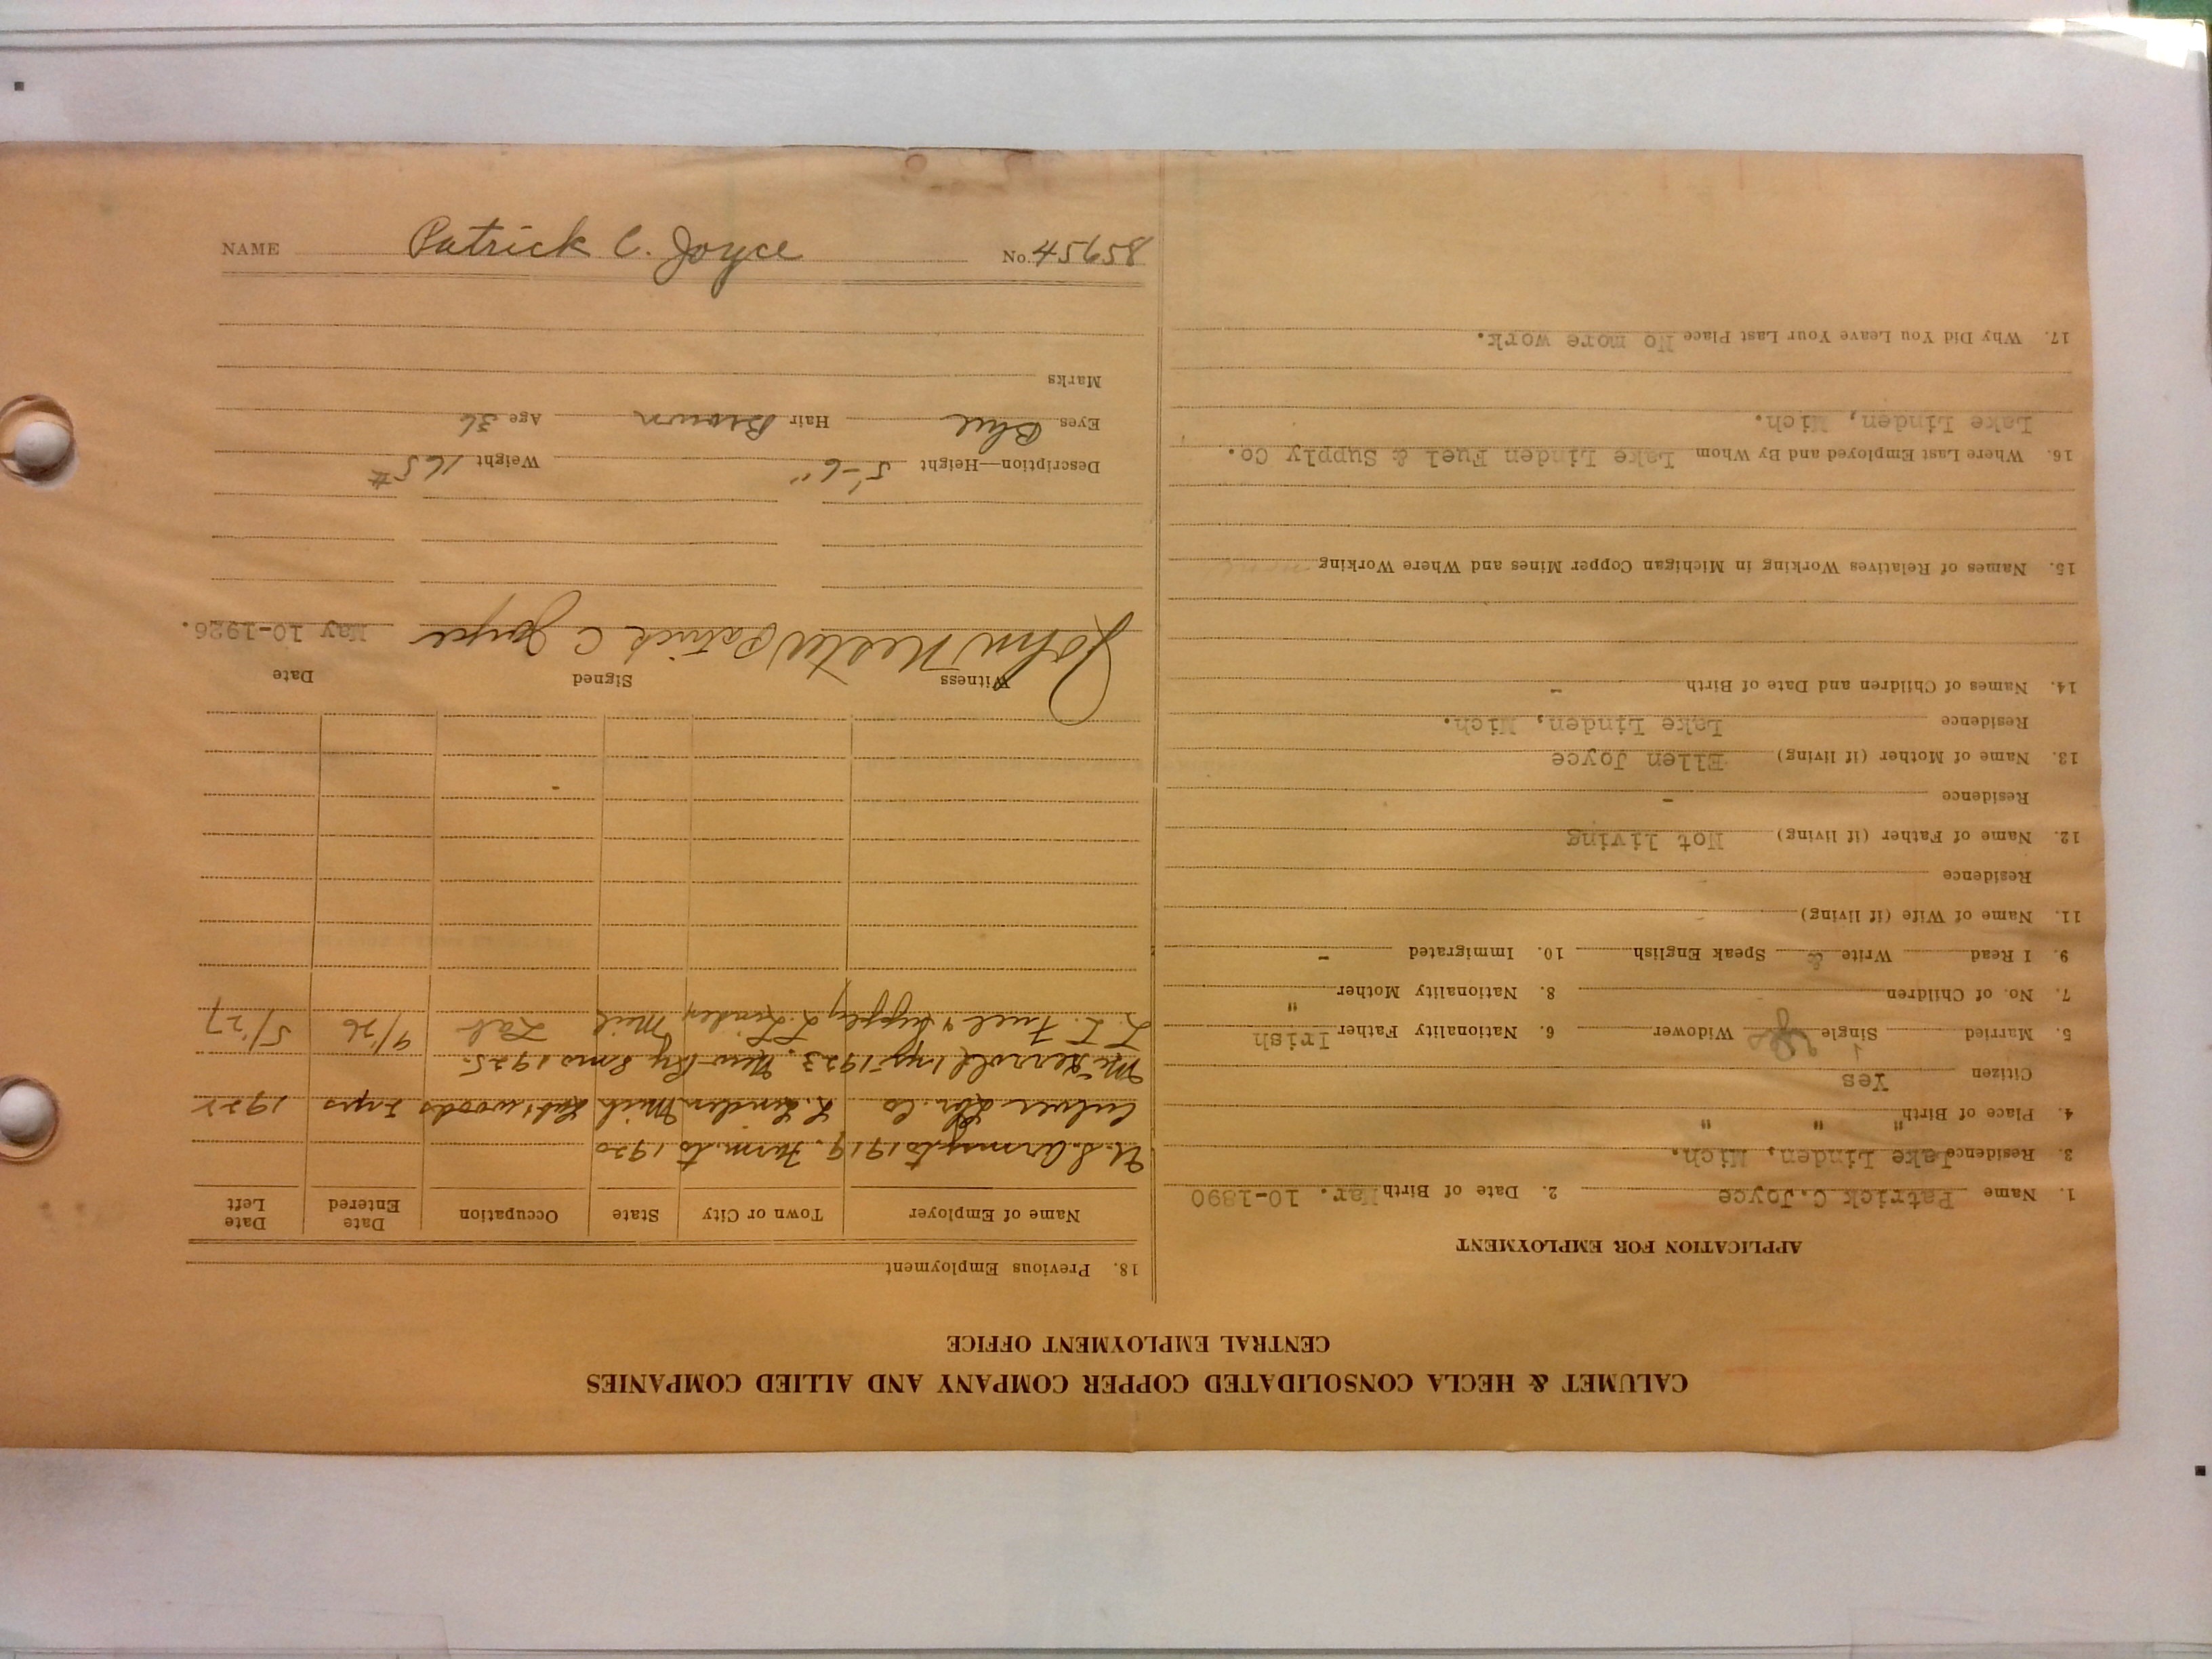 CALUMET & HECLA CONSOLIDATED COPPER COMPANY AND ALLIED COMPANIES
CENTRAL EMPLOYMENT OFFICE
APPLICATION FOR EMPLOYMENT
1. Name Patrick C. Joyce 2. Date of Birth Mar. 10-1890
3. Residence Lake Linden, Mich.
4. Place of Birth " " "
Citizen Yes
5. Married Single Widower 6. Nationality Father Irish
7. No. of Children 8. Nationality Mother "
9. I Read Write & Speak English 10. Immigrated -
11. Name of Wife (if living)
Residence
12. Name of Father (if living) Not living
Residence -
13. Name of Mother (if living) Ellen Joyce
Residence Lake Linden, Mich.
14. Names of Children and Date of Birth -
15. Names of Relatives Working in Michigan Copper Mines and Where Working
16. Where Last Employed and By Whom Lake Linden Fuel & Supply Co.
Lake Linden, Mich.
17. Why Did You Leave Your Last Place No more work.
18. Previous Employment
Name of Employer Town or City State Occupation Date Entered Date Left
U.S. army to 1919. Farm. to 1920
Culver Lbr. Co L. Linden Mich woods 2 yrs 1922
1923. 1925.
L. L. Fuel & Supply L. Linden Mich Lab 4/26 5/27
Witness Signed Date
John Patrick C Joyce May 10-1926.
Description—Height 5'-6" Weight 165 #
Eyes Blue Hair Brown Age 36
Marks
NAME Patrick C. Joyce No. 45658